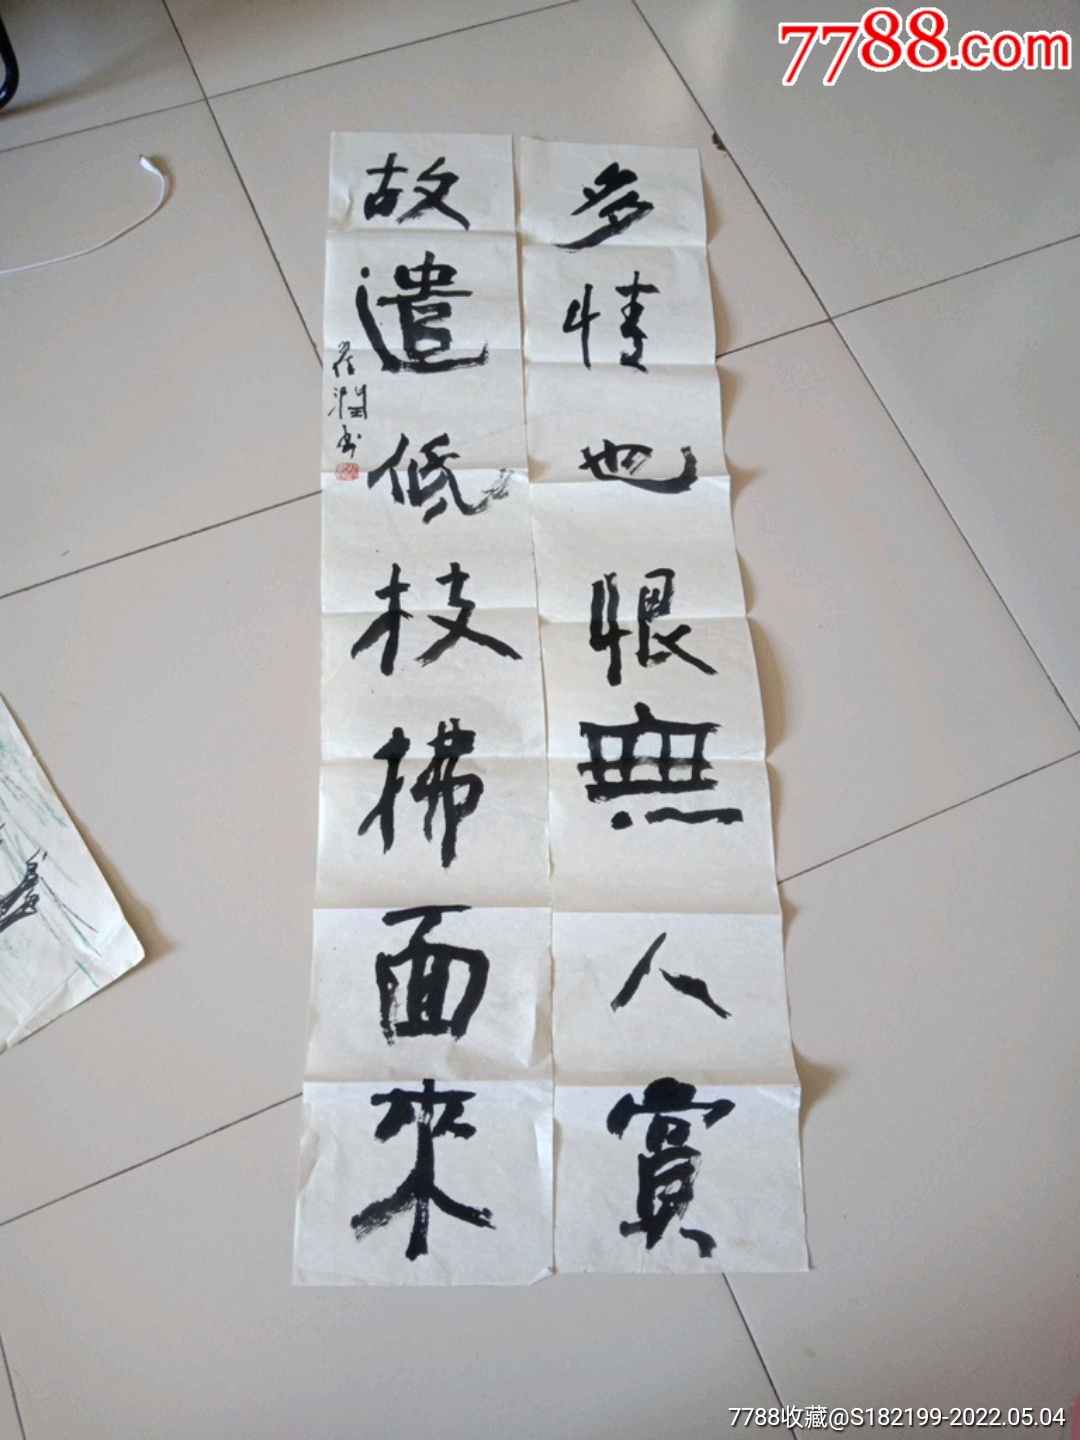 7788.com
多情也恨無人賞
故遣低枝拂面來
崔潤書
7788收藏@S182199-2022.05.04